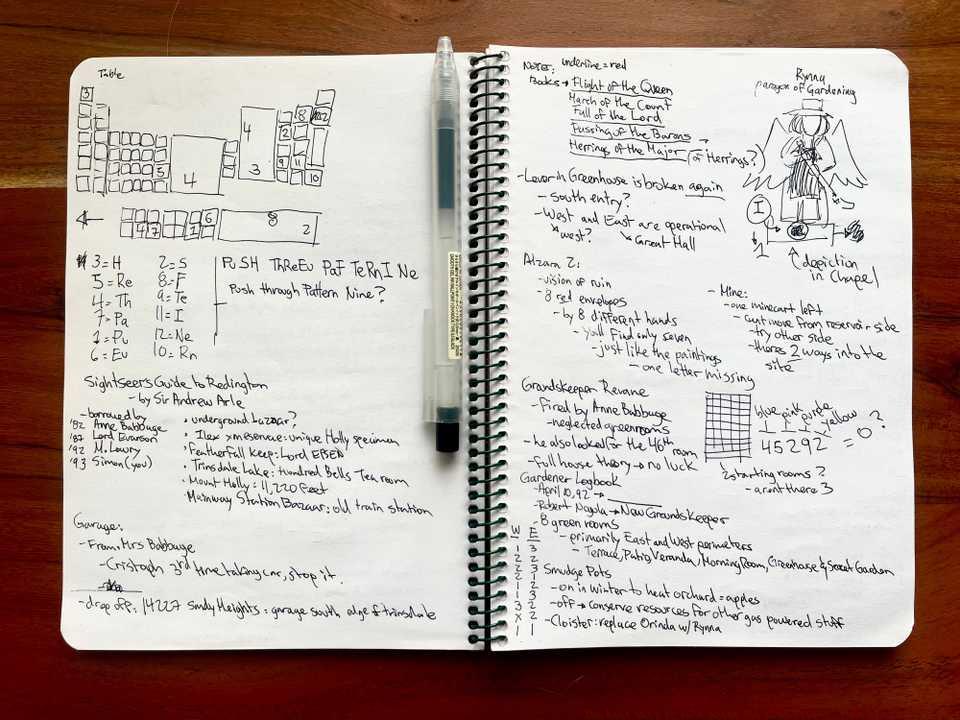 Table
3
8
12
2
4
9
11
5
4
3
10
6
4
7
1
8
2
3 = H
2 = S
5 = Re
8 = F
4 = Th
9 = Te
7 = Pa
11 = I
1 = Pu
12 = Ne
6 = Eu
10 = Rn
PuSH ThReEu PaF TeRnI Ne
Push through Pattern Nine?
Sightseers Guide to Redington
- by Sir Andrew Arle
- borrowed by
'82 Anne Babbage
'87 Lord Evarson
'92 M. Lowry
'93 Simon (you)
• underground Lazaar?
• Ilex xmisencae: unique Holly specimen
• Featherfall Keep: Lord EBSEN
• Trinsdale Lake: Hundred Bells Tea room
• Mount Holly: 11,220 feet
• Mainway Station Bazaar: old train station
Garage:
- From Mrs Babbage
- Cristoph 3rd time taking car, stop it.
- drop off: 14227 Sindy Heights: garage south edge of trinsdale
Notes: underline = red
Books → Flight of the Queen
March of the Count
Fall of the Lord
Fussing of the Barons
Herrings of the Major (of Herrings?)
Rynna
paragon of Gardening
I
1
depiction
in Chapel
- Lever in Greenhouse is broken again
- South entry?
- West and East are operational
west?
Great Hall
Alzara 2:
- vision of ruin
- 8 red envelopes
- by 8 different hands
- you'll find only seven
- just like the paintings
- one letter missing
- Mine:
- one minecart left
- cant move from reservoir side
- try other side
- theres 2 ways into the
site
Grondskeeper Revane
- Fired by Anne Babbage
- neglected greenrooms
- he also looked for the 46th room
- full house theory → no luck
blue pink purple yellow
45292 = 0 ?
2 starting rooms?
- arent there 3
Gardener Logbook
- April 10, 92 →
- Robert Nagola → New Groundskeeper
- 8 green rooms
- primarily East and West perimeters
- Terrace, Patio, Veranda, Morning Room, Greenhouse & Secret Garden
Smudge Pots
- on in winter to heat orchard = apples
- off → conserve resources for other gas powered stuff
- Cloister: replace Orinda w/ Rynna
W E
1 3
2 2
2 3
2 1
1 2
1 3
3 2
x 2
1 1